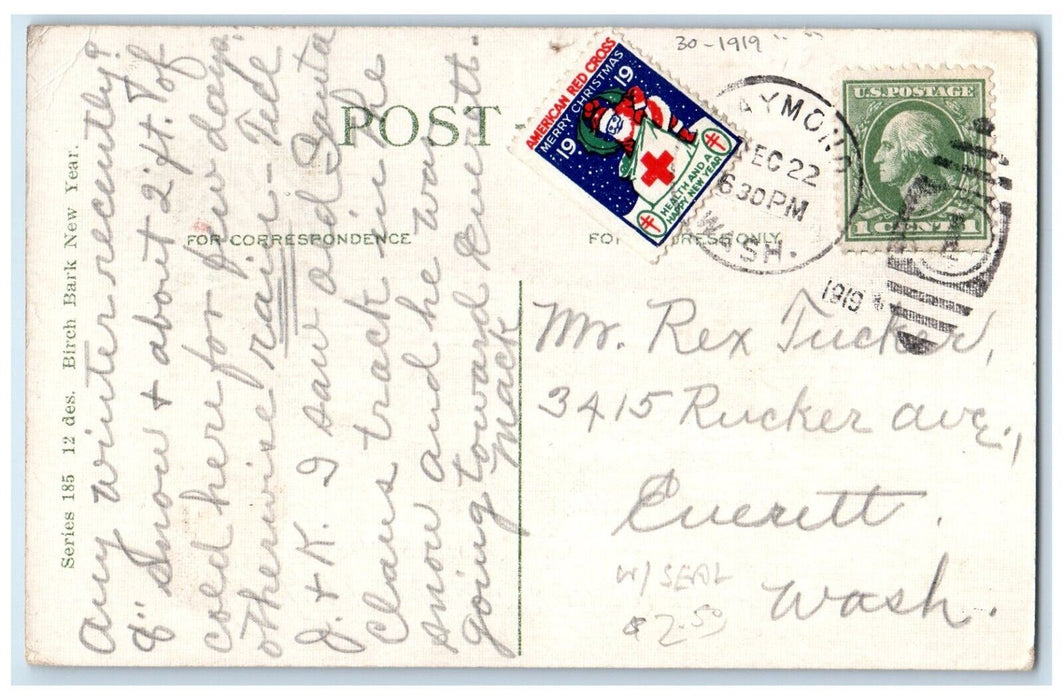 30-1919
POST
FOR CORRESPONDENCE
Series 185 12 des. Birch Bark New Year.
Any winter recently?
8" Snow + about 2 ft. of
cold here for few days,
otherwise rain - Tell
J. + K. I saw old Santa
Claus track in the
snow and he was
going toward Everett.
Mack
AMERICAN RED CROSS
MERRY CHRISTMAS
19 19
HEALTH AND A
HAPPY NEW YEAR
RAYMOND
DEC 22
630 PM
WASH.
1919
U.S. POSTAGE
1 CENT 1
FOR ADDRESS ONLY
Mr. Rex Tucker,
3415 Rucker ave.,
Everett.
Wash.
W/ SEAL
$2.50